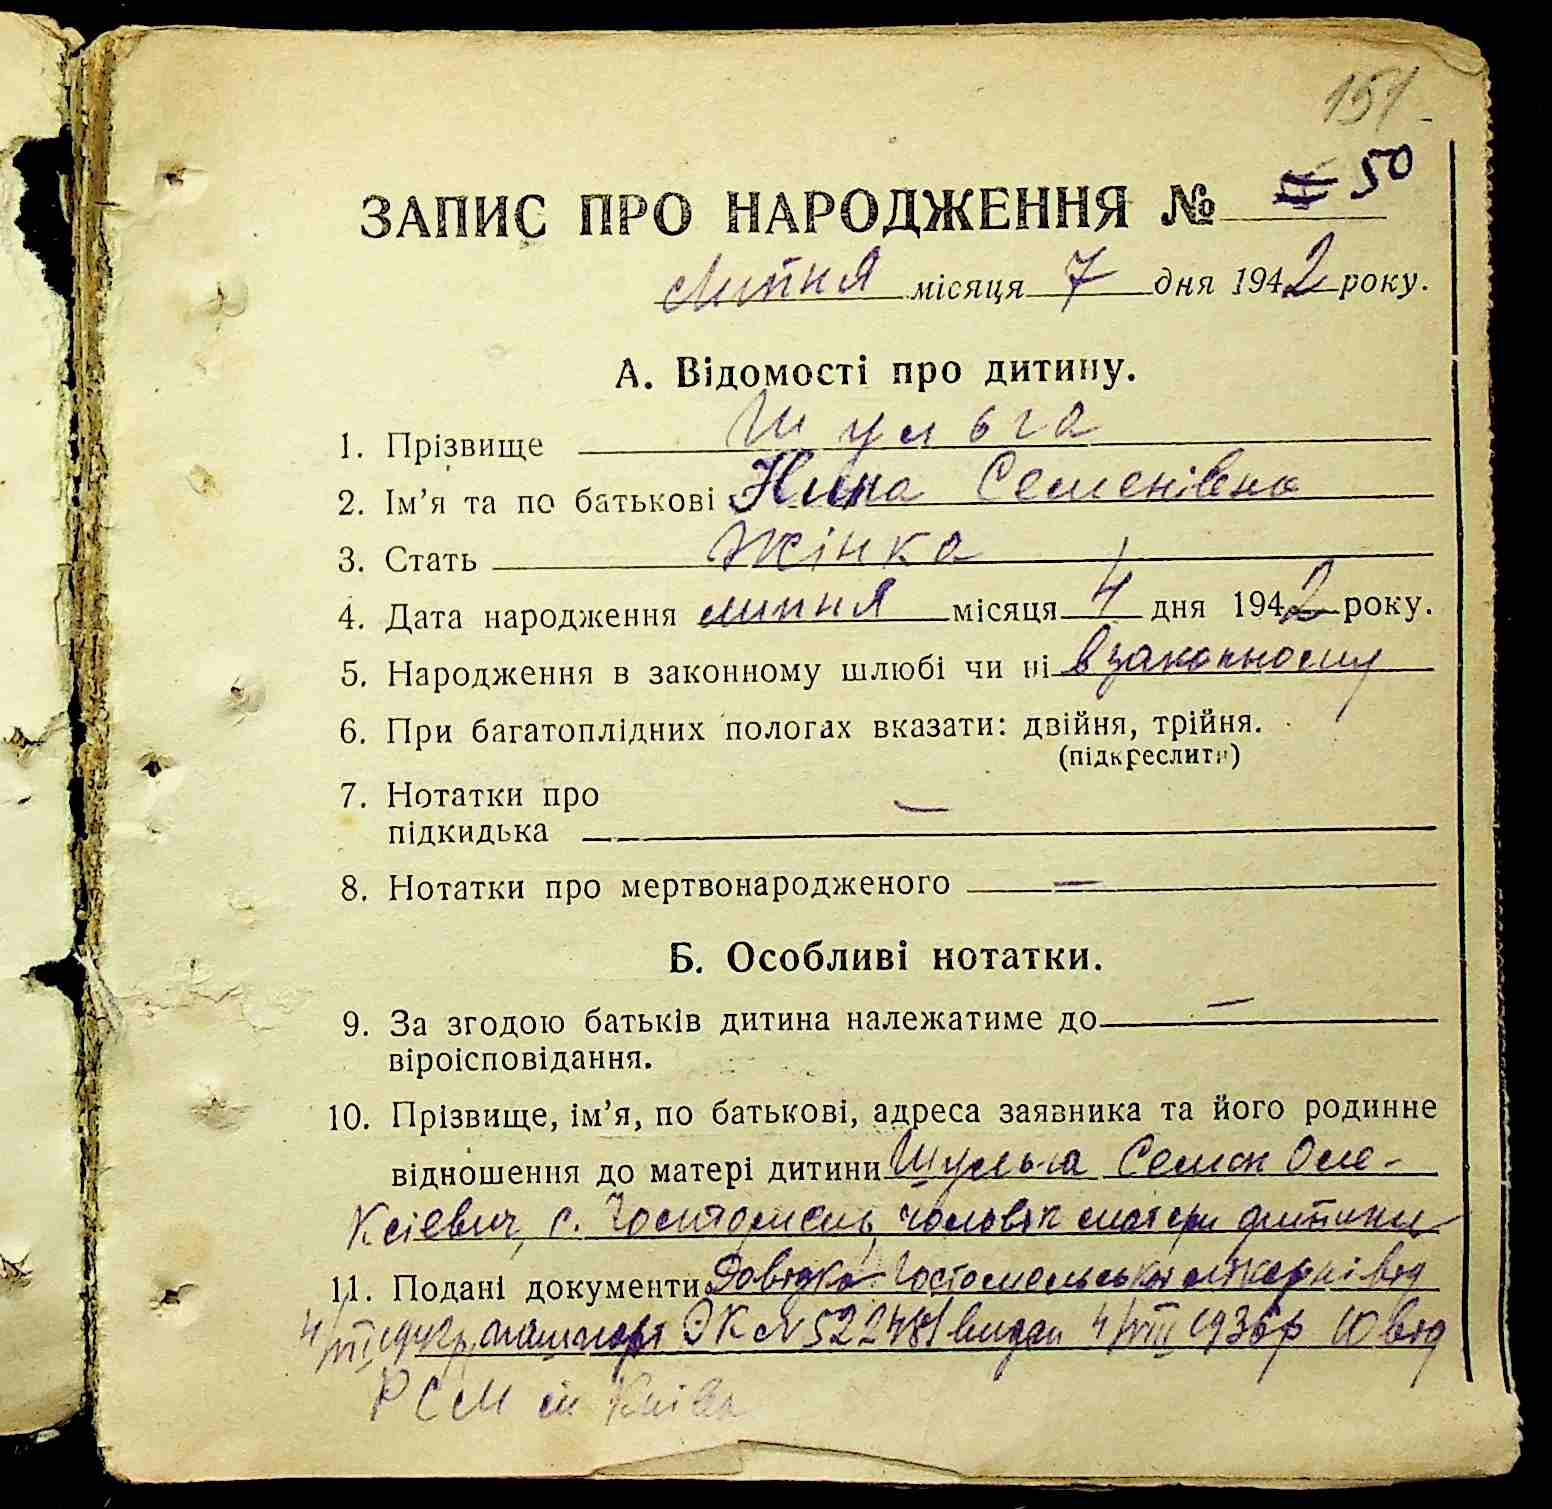 151
ЗАПИС ПРО НАРОДЖЕННЯ № 50
липня місяця 7 дня 1942 року.
А. Відомості про дитину.
1. Прізвище Шульга
2. Ім'я та по батькові Нина Семенівна
3. Стать жінка
4. Дата народження липня місяця 4 дня 1942 року.
5. Народження в законному шлюбі чи ні в законному
6. При багатоплідних пологах вказати: двійня, трійня.
(підкреслити)
7. Нотатки про
підкидька —
8. Нотатки про мертвонародженого —
Б. Особливі нотатки.
9. За згодою батьків дитина належатиме до —
віроісповідання.
10. Прізвище, ім'я, по батькові, адреса заявника та його родинне
відношення до матері дитини Шульга Семен Оле-
ксіевич, с. Гостомель, чоловік матери дитини
11. Подані документи Довідка Гостомельської лікарні від
4/VII 1942 р. пашпорт ЭК № 522481 видан 4/VIII 1936 р 10 від
РСМ м Київа